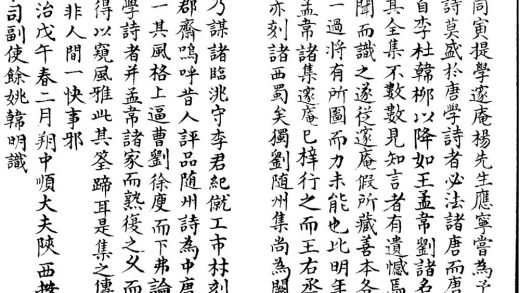 同寅提學邃庵楊先生應寧嘗為予
詩莫盛於唐學詩者必法諸唐而唐
自李杜韓柳以降如王孟韋劉諸名
其全集不數數見知言者有遺憾焉
聞而識之遂從邃庵假所藏善本各
一過將有所圖而力未能也比明年
孟韋諸集邃庵已梓行之而王右丞
亦刻諸西蜀矣獨劉随州集尚為闕
乃謀諸臨洮守李君紀僦工市材刻
郡齋嗚呼昔人評品随州詩為中唐
一其風格上逼曹劉徐庾而下弗論
學詩者并孟韋諸家而熟復之又而
得以窺風雅此其筌蹄耳是集之傳
非人間一快事邪
治戊午春二月朔中順大夫陝西按
司副使餘姚韓明識